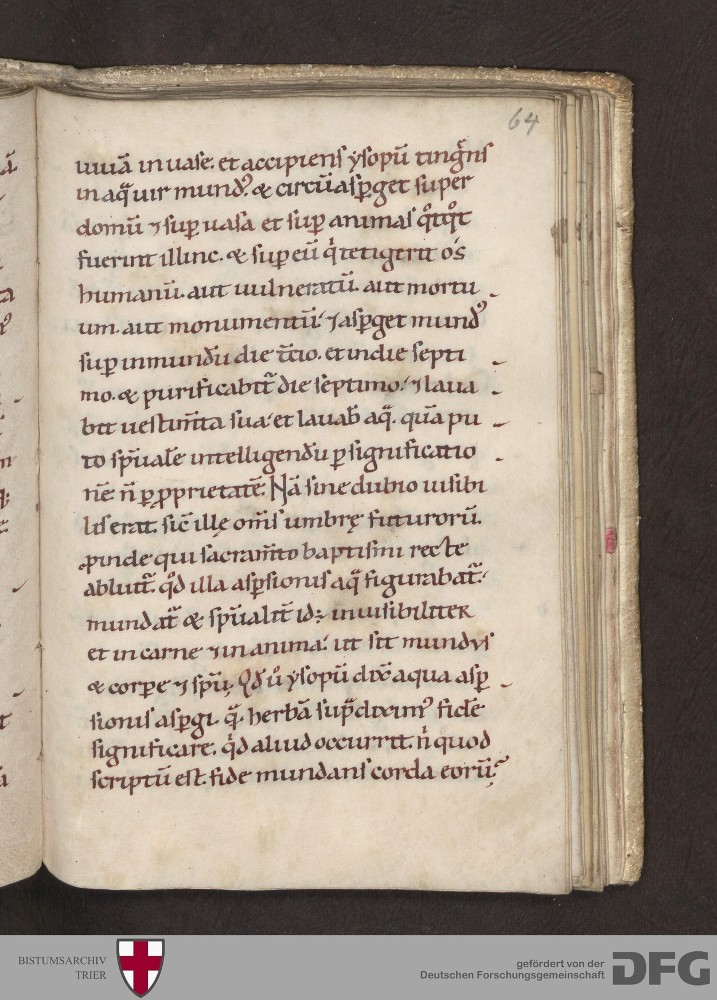 64
uiuā in uase. et accipiens ẏsopū tinḡns
in aq̄ uir mund᷒. & circūasꝑget super
domū ⁊ suꝑ uasa et suꝑ animas qͦtqͦt
fuerint illinc. & suꝑ eū qͥ tetigerit os
humanū. aut uulneratū. aut mortu
um. aut monumentū. ⁊ asꝑget mund᷒
suꝑ inmundū die t̄cio. et in die septi
mo. & purificabit᷑ die septimo. ⁊ laua
bit uestim̄ta sua. et lauab̄ aq̄. quā pu
to sp̄uale intelligendū ꝑ significatio
nē. n̄ ꝑ ꝓprietatē. Nā sine dubio uisibi
lis erat. sic̄ illę om̄s umbrę futurorū.
ꝓinde qui sacram̄to baptismi recte
abluit᷑. qd̄ illa asꝑsionis aq̄ figurabat᷑.
mundat᷑ & sp̄ualit̄ id ÷ inuisibiliter
et in carne ⁊ in anima. ut sit mundus
& corꝑe ⁊ sp̄u. Qd̄ uͦ ẏsopū dix̄ aqua asꝑ
sionis asꝑgi. q̄ herbā sup̄ dixim᷒ fidē
significare. qͥd aliud occurrit. nͥ quod
scriptū est. fide mundans corda eorū.
BISTUMSARCHIV
TRIER
gefördert von der
Deutschen Forschungsgemeinschaft
DFG